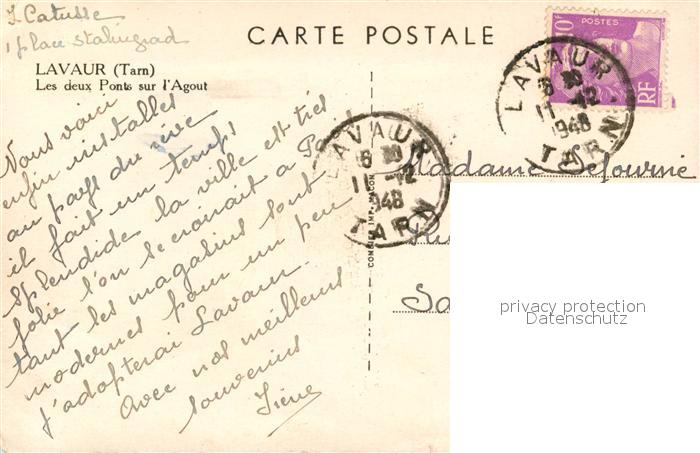 I. Catusse
1 place stalingrad
CARTE POSTALE
LAVAUR (Tarn)
Les deux Ponts sur l'Agout
Nous voici
enfin installés
au pays du rêve
il fait un temps
splendide la ville est très
jolie l'on se croirait a Paris
tant les magasins sont
modernes pour un peu
j'adopterai Lavaur.
Avec nos meilleurs
souvenirs
Irène
COMBIER IMP. MACON
POSTES
10F
RF
LAVAUR
11 -12
1948
TARN
LAVAUR
11 -12
1948
TARN
Madame Séjourné
privacy protection
Datenschutz